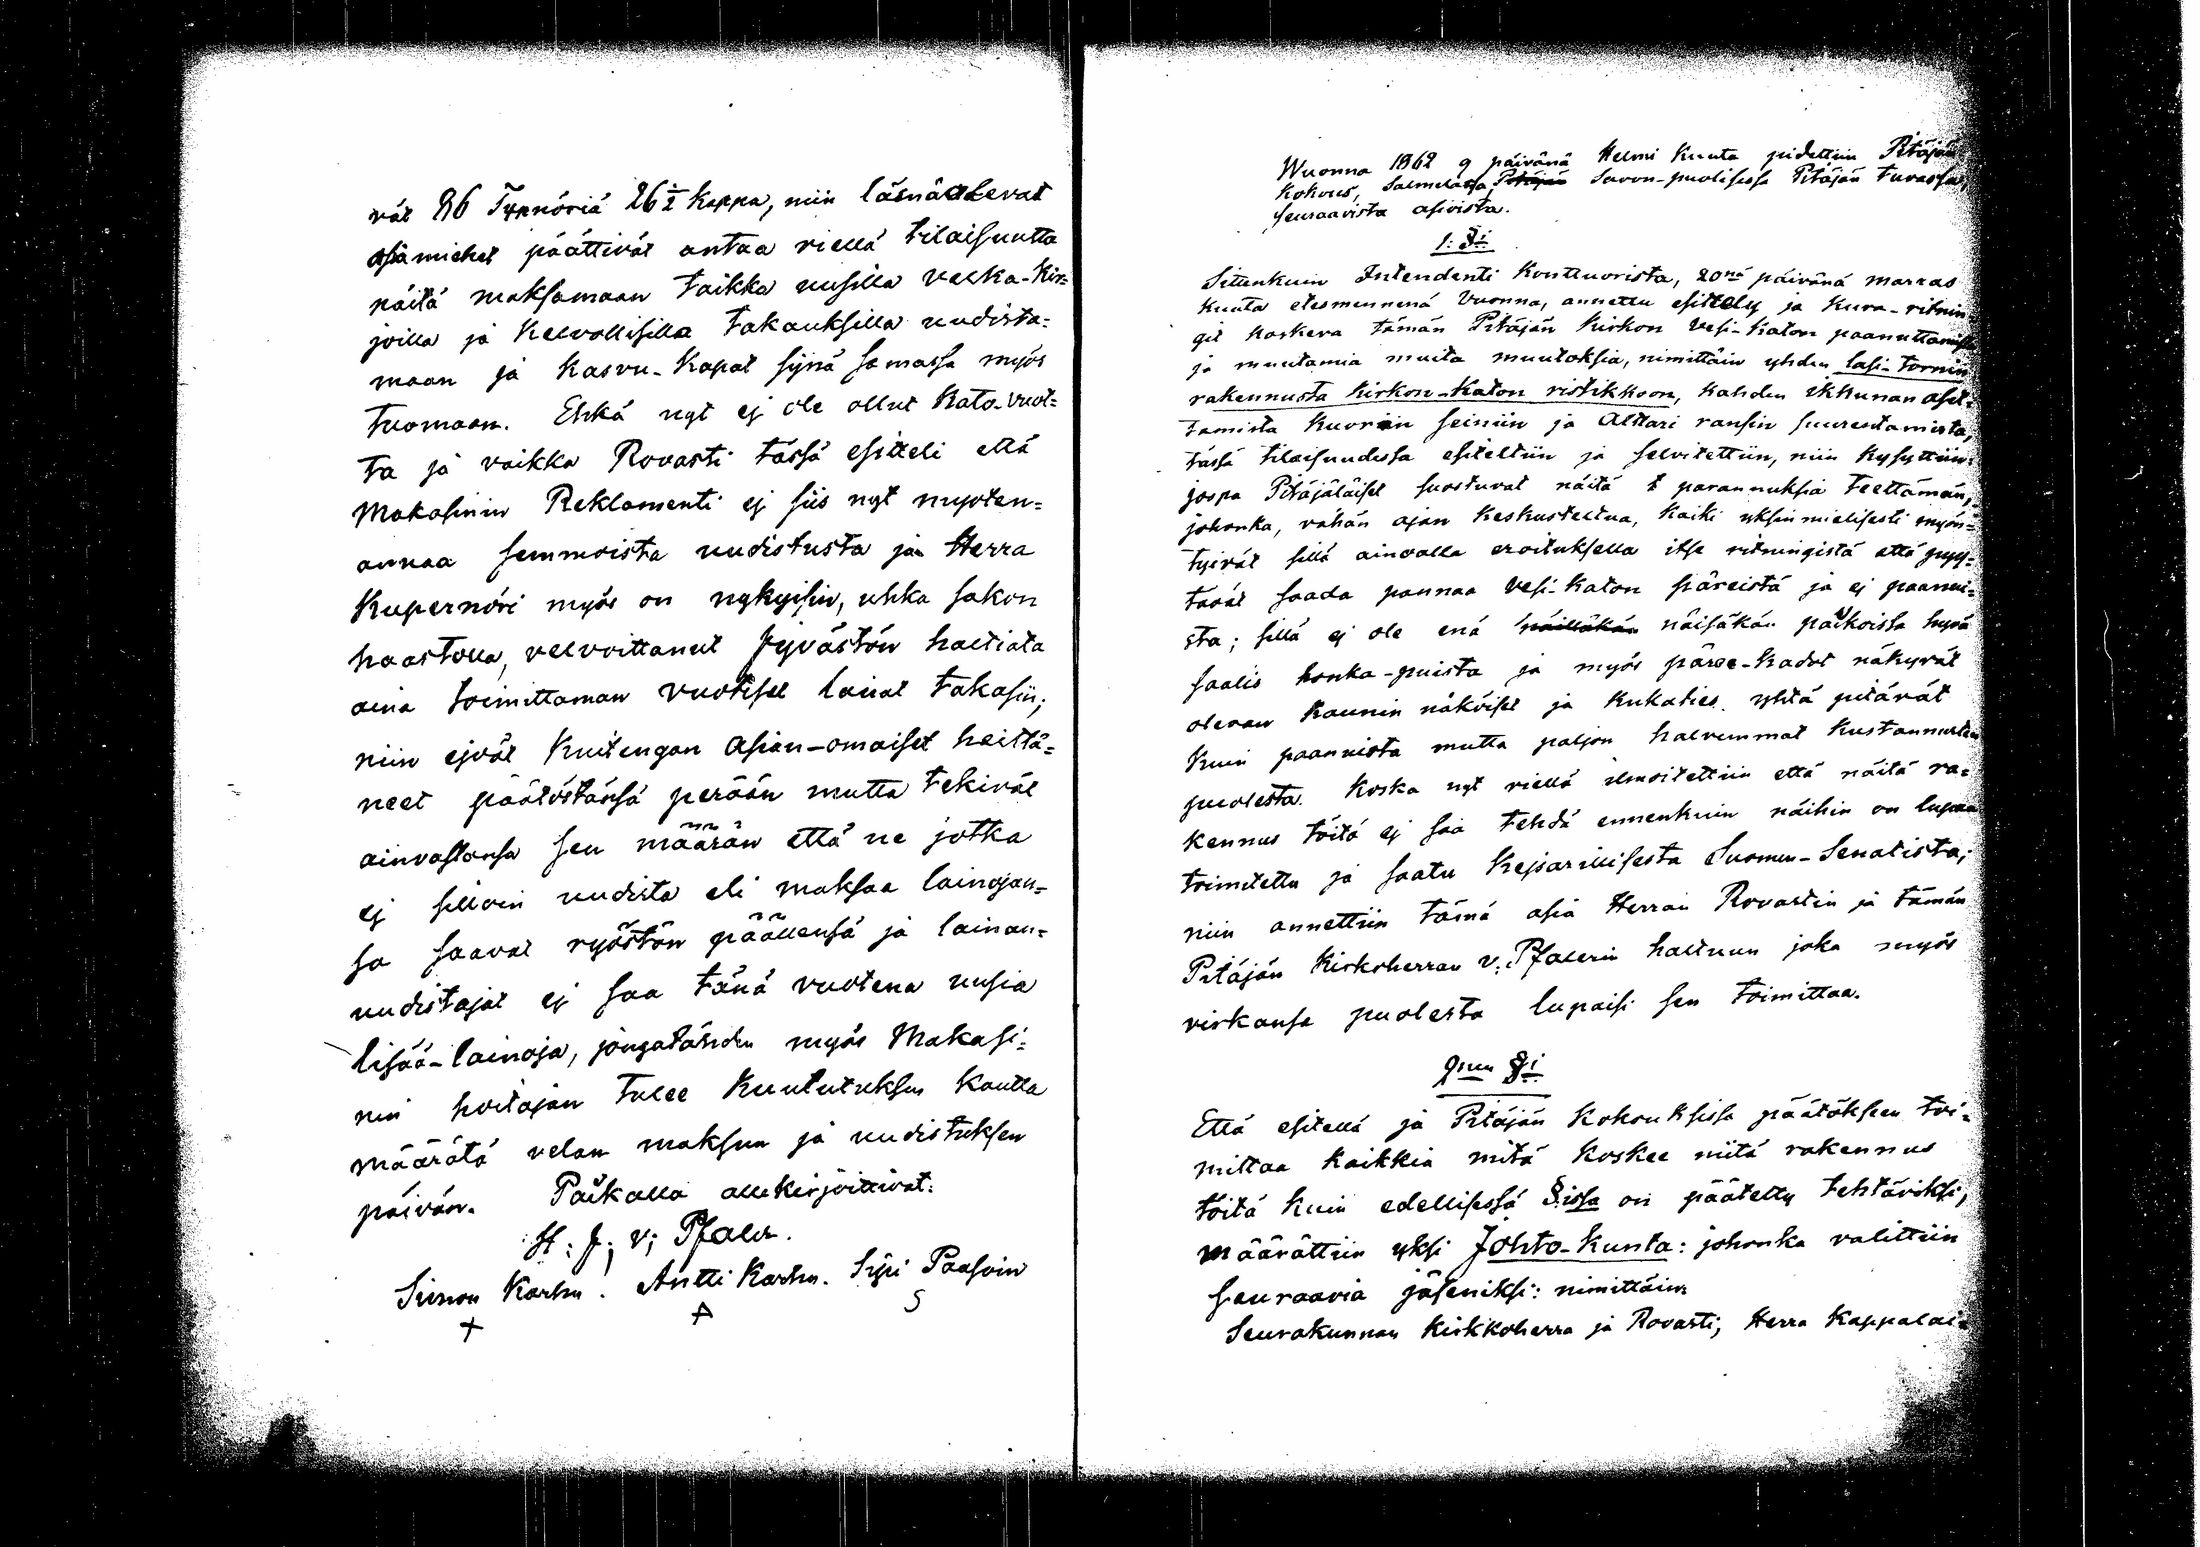 vät 86 Tynnöriä 26 1/2 kappa, niin läsnäolevat
asiamiehet päättivät antaa viellä tilaisuutta
näitä maksamaan taikka uusilla velka-kir=
joilla ja kelvollisilla takauksilla uudista=
maan ja kasvu-kapat synä samassa myös
tuomaan. Ehkä nyt ej ole ollut kato-vuot=
ta ja vaikka Rovasti tässä esitteli että
Makasinin Reklamenti ej siis nyt myöten=
annaa semmoista uudistusta ja Herra
Kupernöri myös on nykyisin, uhka sakon
haastolla, velvoittanut Jyvästön haltiata
aina toimittaman vuotiset lainat takasin;
niin ejvät kuitengan asian-omaiset heittä=
neet päätöstänsä perään mutta tekivät
ainvastansa sen määrän että ne jotka
ej silloin uudista eli maksaa lainojan=
sa saavat ryöstön päällensä ja lainan=
uudistajat ej saa tänä vuotena uusia
lisää-lainoja, jongatähden myös Makasi=
nin hoitajan tulee kuulutuksen kautta
määrätä velan maksun ja uudistuksen
päivän. Paikalla allekirjoittivat:
H: J; v; Pfaler.
Simon Karhu. Antti Karhu. Yrjö Paasoin
Wuonna 1862 9 päivänä Helmi kuuta pidettiin Pitäjän
kokous, Salmelassa, Pitäjän Savon-puolisessa Pitäjän tuvassa,
seuraavista asioista.
1: §i
Sitenkuin Intendenti konttuorista, 20nä päivänä marras
kuuta etesmennenä vuonna, annettu esittely ja kuva-ritnin
git koskeva tämän Pitäjän kirkon vesi-katon paanuttamista
ja muutamia muita muutoksia, nimittäin yhden lasi-tornin
rakennusta kirkon-katon ristikkoon, kahden ikkunan aset=
tamista kuorin seiniin ja Alttari ransin suurentamista,
tässä tilaisuudessa esiteltiin ja selvitettiin, niin kysyttiin:
jospa Pitäjäläiset suostuvat näitä t parannuksia teettämän,
johonka, vähän ajan keskusteltua, kaiki yksin mielisesti myön=
tyivät sillä ainoalla eroituksella itse ritningistä että pyy=
tävät saada pannaa vesi-katon päreistä ja ej paanui=
sta; sillä ej ole enä näilläkän näisäkän paikoissa hyvä
saalis honka-puista ja myös päree-kadot näkyvät
olevan kaunin näköiset ja kukaties yhtä pitävät
kuin paanuista mutta paljon halvemmat kustannusten
puolesta. Koska nyt viellä ilmoitettiin että näitä ra=
kennus töitä ej saa tehdä ennenkuin näihin on lupaa
toimitettu ja saatu kejsarillisesta Suomen-Senatista;
niin annettiin tämä asia Herran Rovastin ja tämän
Pitäjän kirkoherran v; Pfalerin haltuun joka myös
virkansa puolesta lupaisi sen toimittaa.
2nen §i
Että esitellä ja Pitäjän kokouksissa päätökseen toi=
mittaa kaikkia mitä koskee niitä rakennus
töitä kuin edellisessä §:issa on päätetty tehtäviksi,
määrättiin yksi Johto-kunta: johonka valittiin
seuraavia jäseniksi: nimittäin
Seurakunnan kirkkoherra ja Rovasti, Herra kappalai=